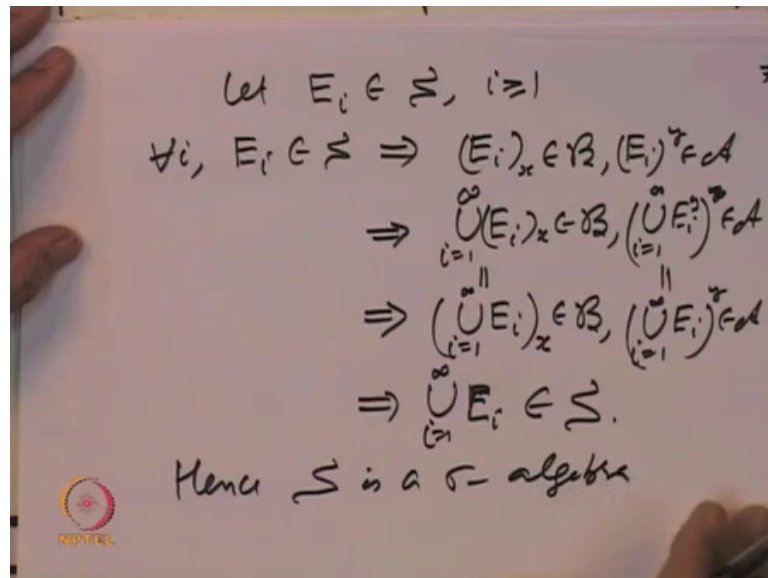 Let Eᵢ ∈ S, i ≥ 1
∀i, Eᵢ ∈ S ⇒ (Eᵢ)ₓ ∈ ℬ, (Eᵢ)ʸ ∈ 𝒜
⇒ ⋃_{i=1}^∞ (Eᵢ)ₓ ∈ ℬ, (⋃_{i=1}^∞ Eᵢʸ)ʸ ∈ 𝒜
|| ||
⇒ (⋃_{i=1}^∞ Eᵢ)ₓ ∈ ℬ, (⋃_{i=1}^∞ Eᵢ)ʸ ∈ 𝒜
⇒ ⋃_{i=1}^∞ Eᵢ ∈ S.
Hence S is a σ- algebra
NPTEL